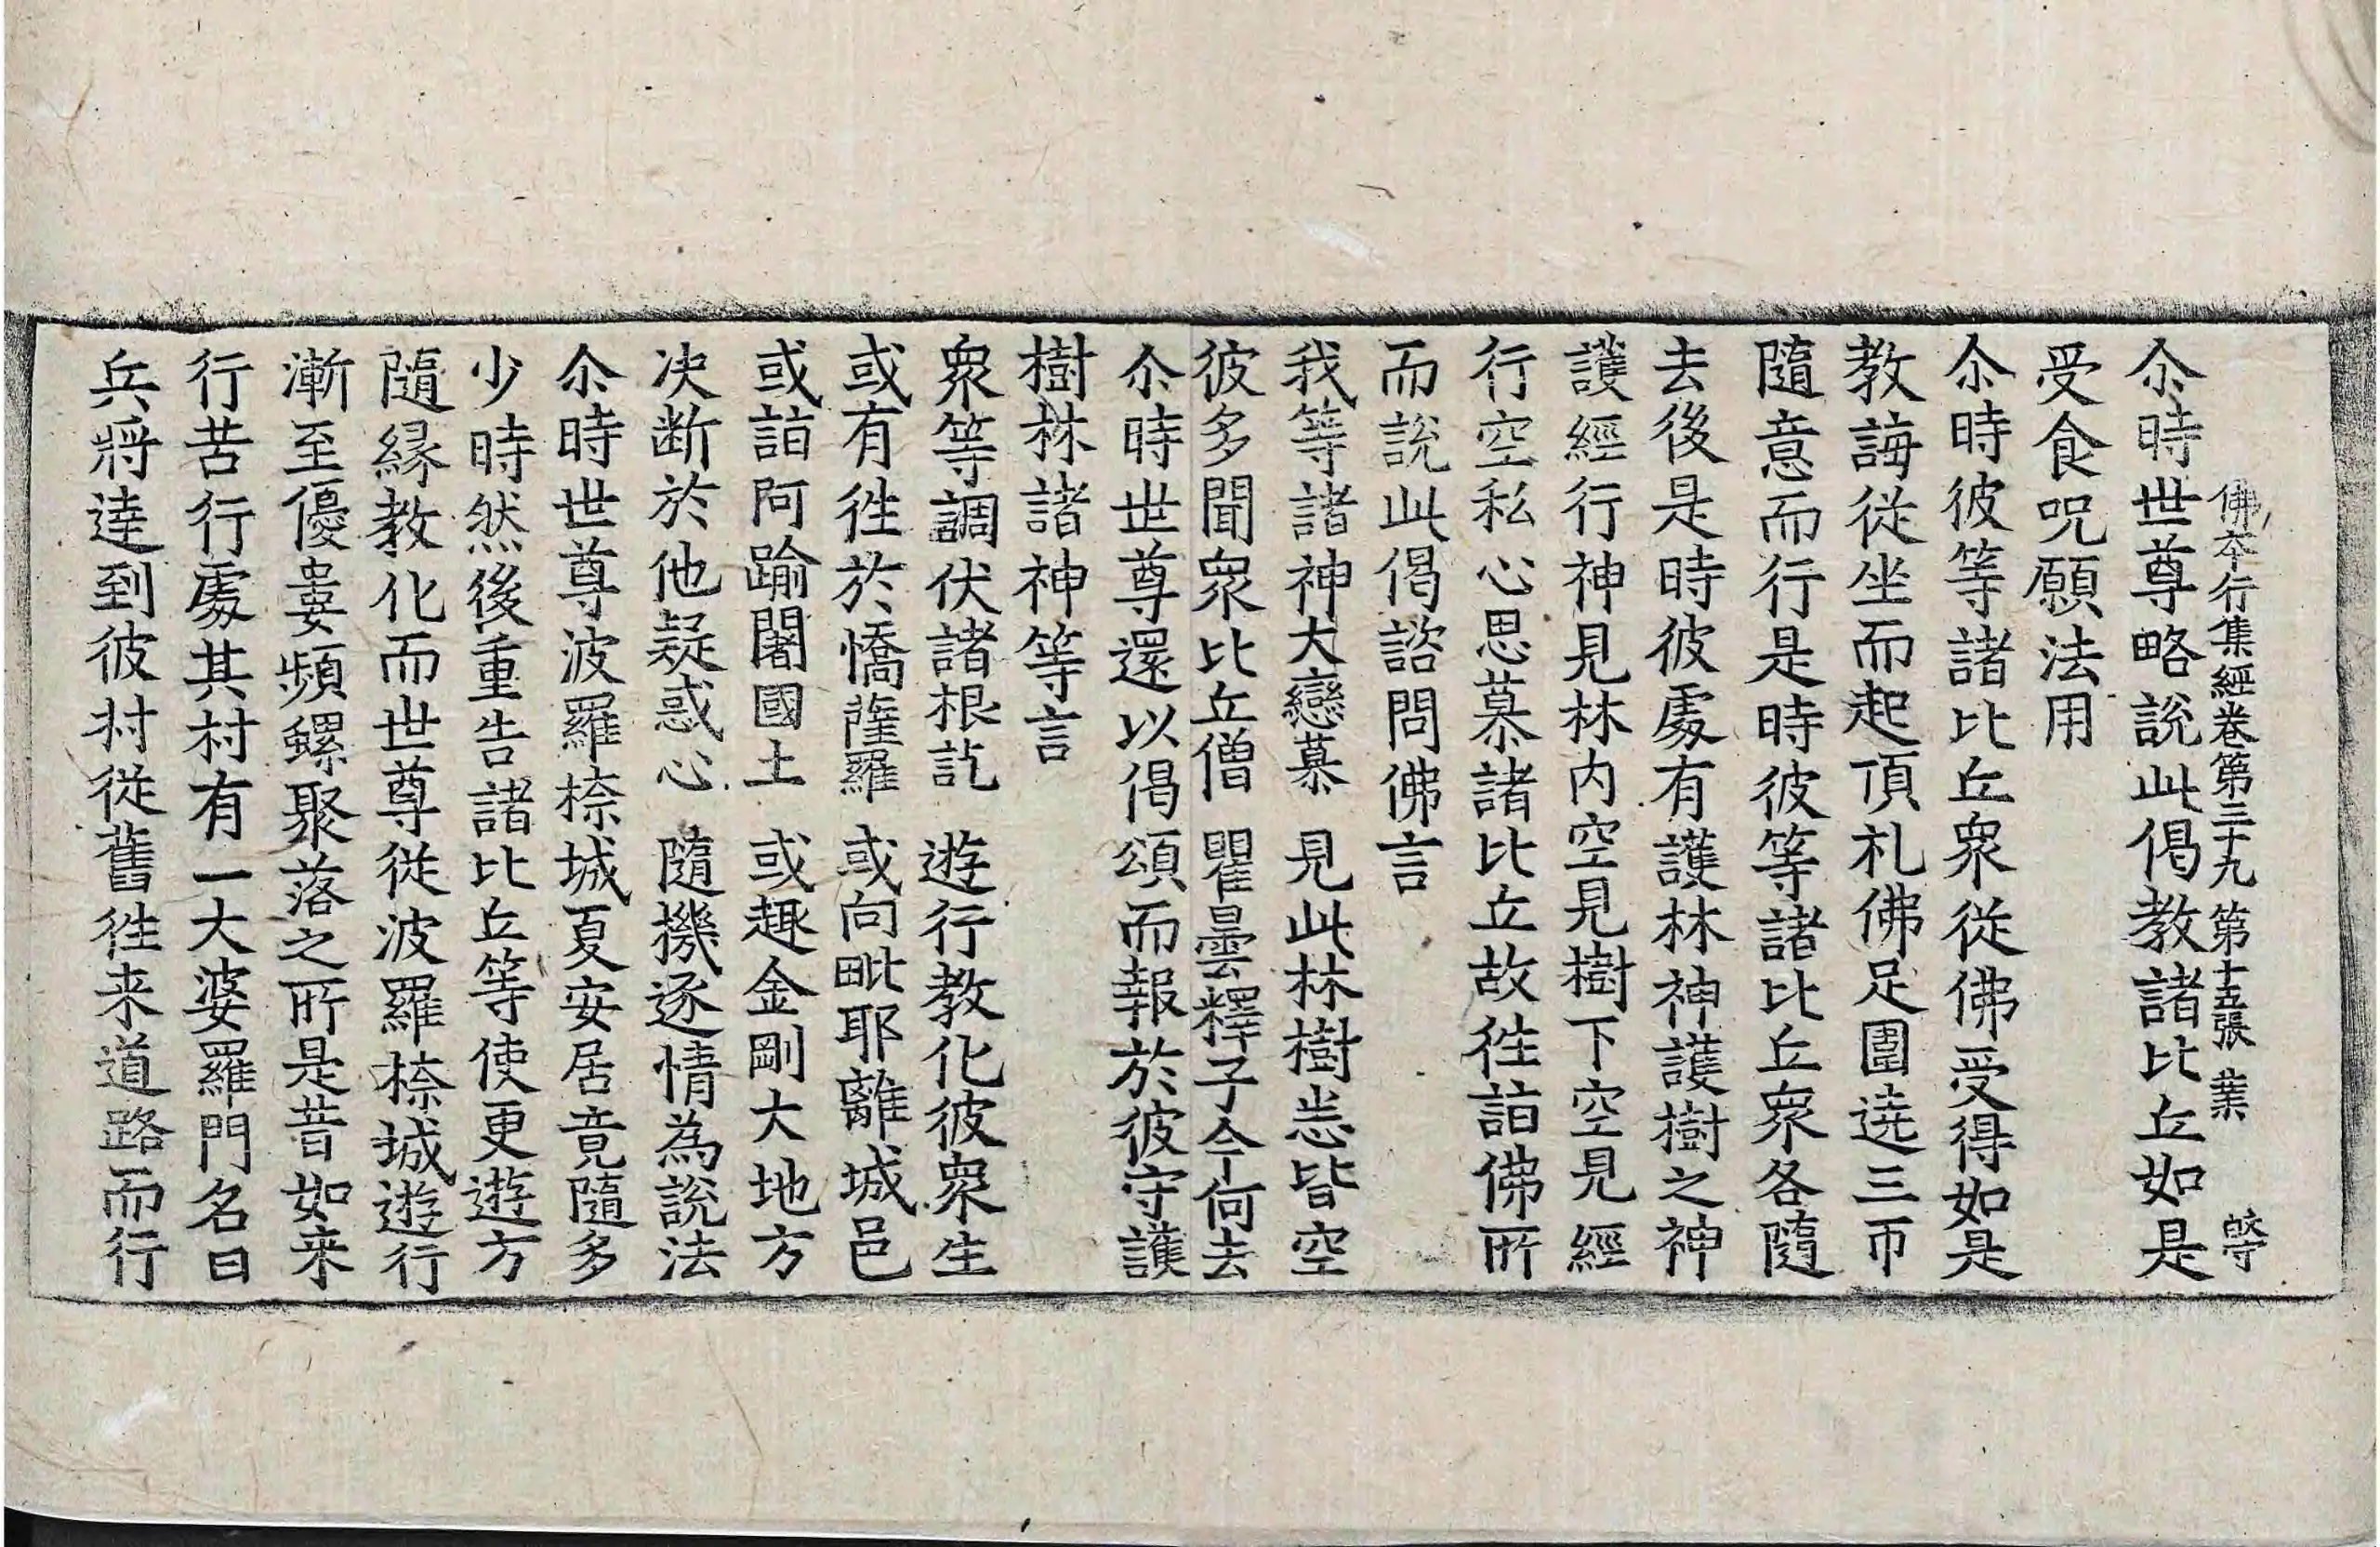 佛本行集經卷第三十九 第十五張 業
尒時世尊略說此偈教諸比丘如是
受食呪願法用
尒時彼等諸比丘衆從佛受得如是
教誨從坐而起頂礼佛足圍遶三帀
隨意而行是時彼等諸比丘衆各隨
去後是時彼處有護林神護樹之神
護經行神見林内空見樹下空見經
行空私心思慕諸比丘故徃詣佛所
而說此偈諮問佛言
我等諸神大戀慕 見此林樹恙皆空
彼多聞衆比丘僧 瞿曇釋子今何去
尒時世尊還以偈頌而報於彼守護
樹林諸神等言
衆等調伏諸根訖 遊行教化彼衆生
或有徃於憍薩羅 或向毗耶離城邑
或詣阿踰闍國土 或趣金剛大地方
决断於他疑惑心 隨機逐情為說法
尒時世尊波羅㮈城夏安居竟隨多
少時然後重告諸比丘等使更遊方
隨縁教化而世尊從波羅㮈城遊行
漸至優婁頻螺聚落之所是昔如来
行苦行處其村有一大婆羅門名曰
兵將達到彼村從舊徃来道路而行